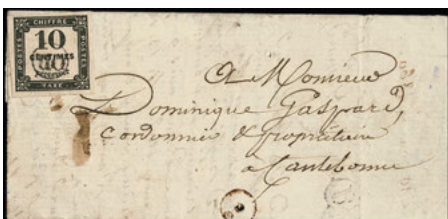 CHIFFRE
POSTES 10 POSTES
CENTIMES
TAXE
A Monsieur
Dominique Gaspard,
Cordonnier & propriétaire
à Cantebonne